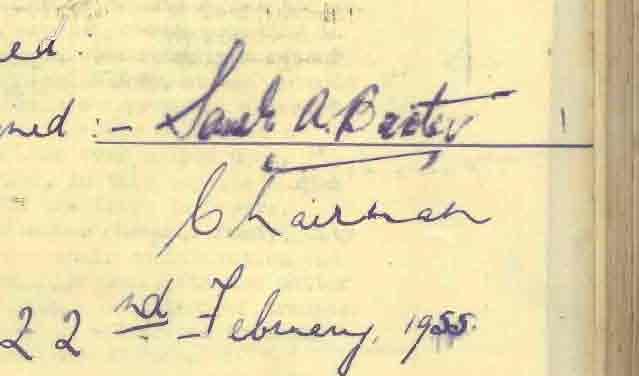 ed:
ned :- Sarah A. Baxter
Chairman
22nd February, 1955.